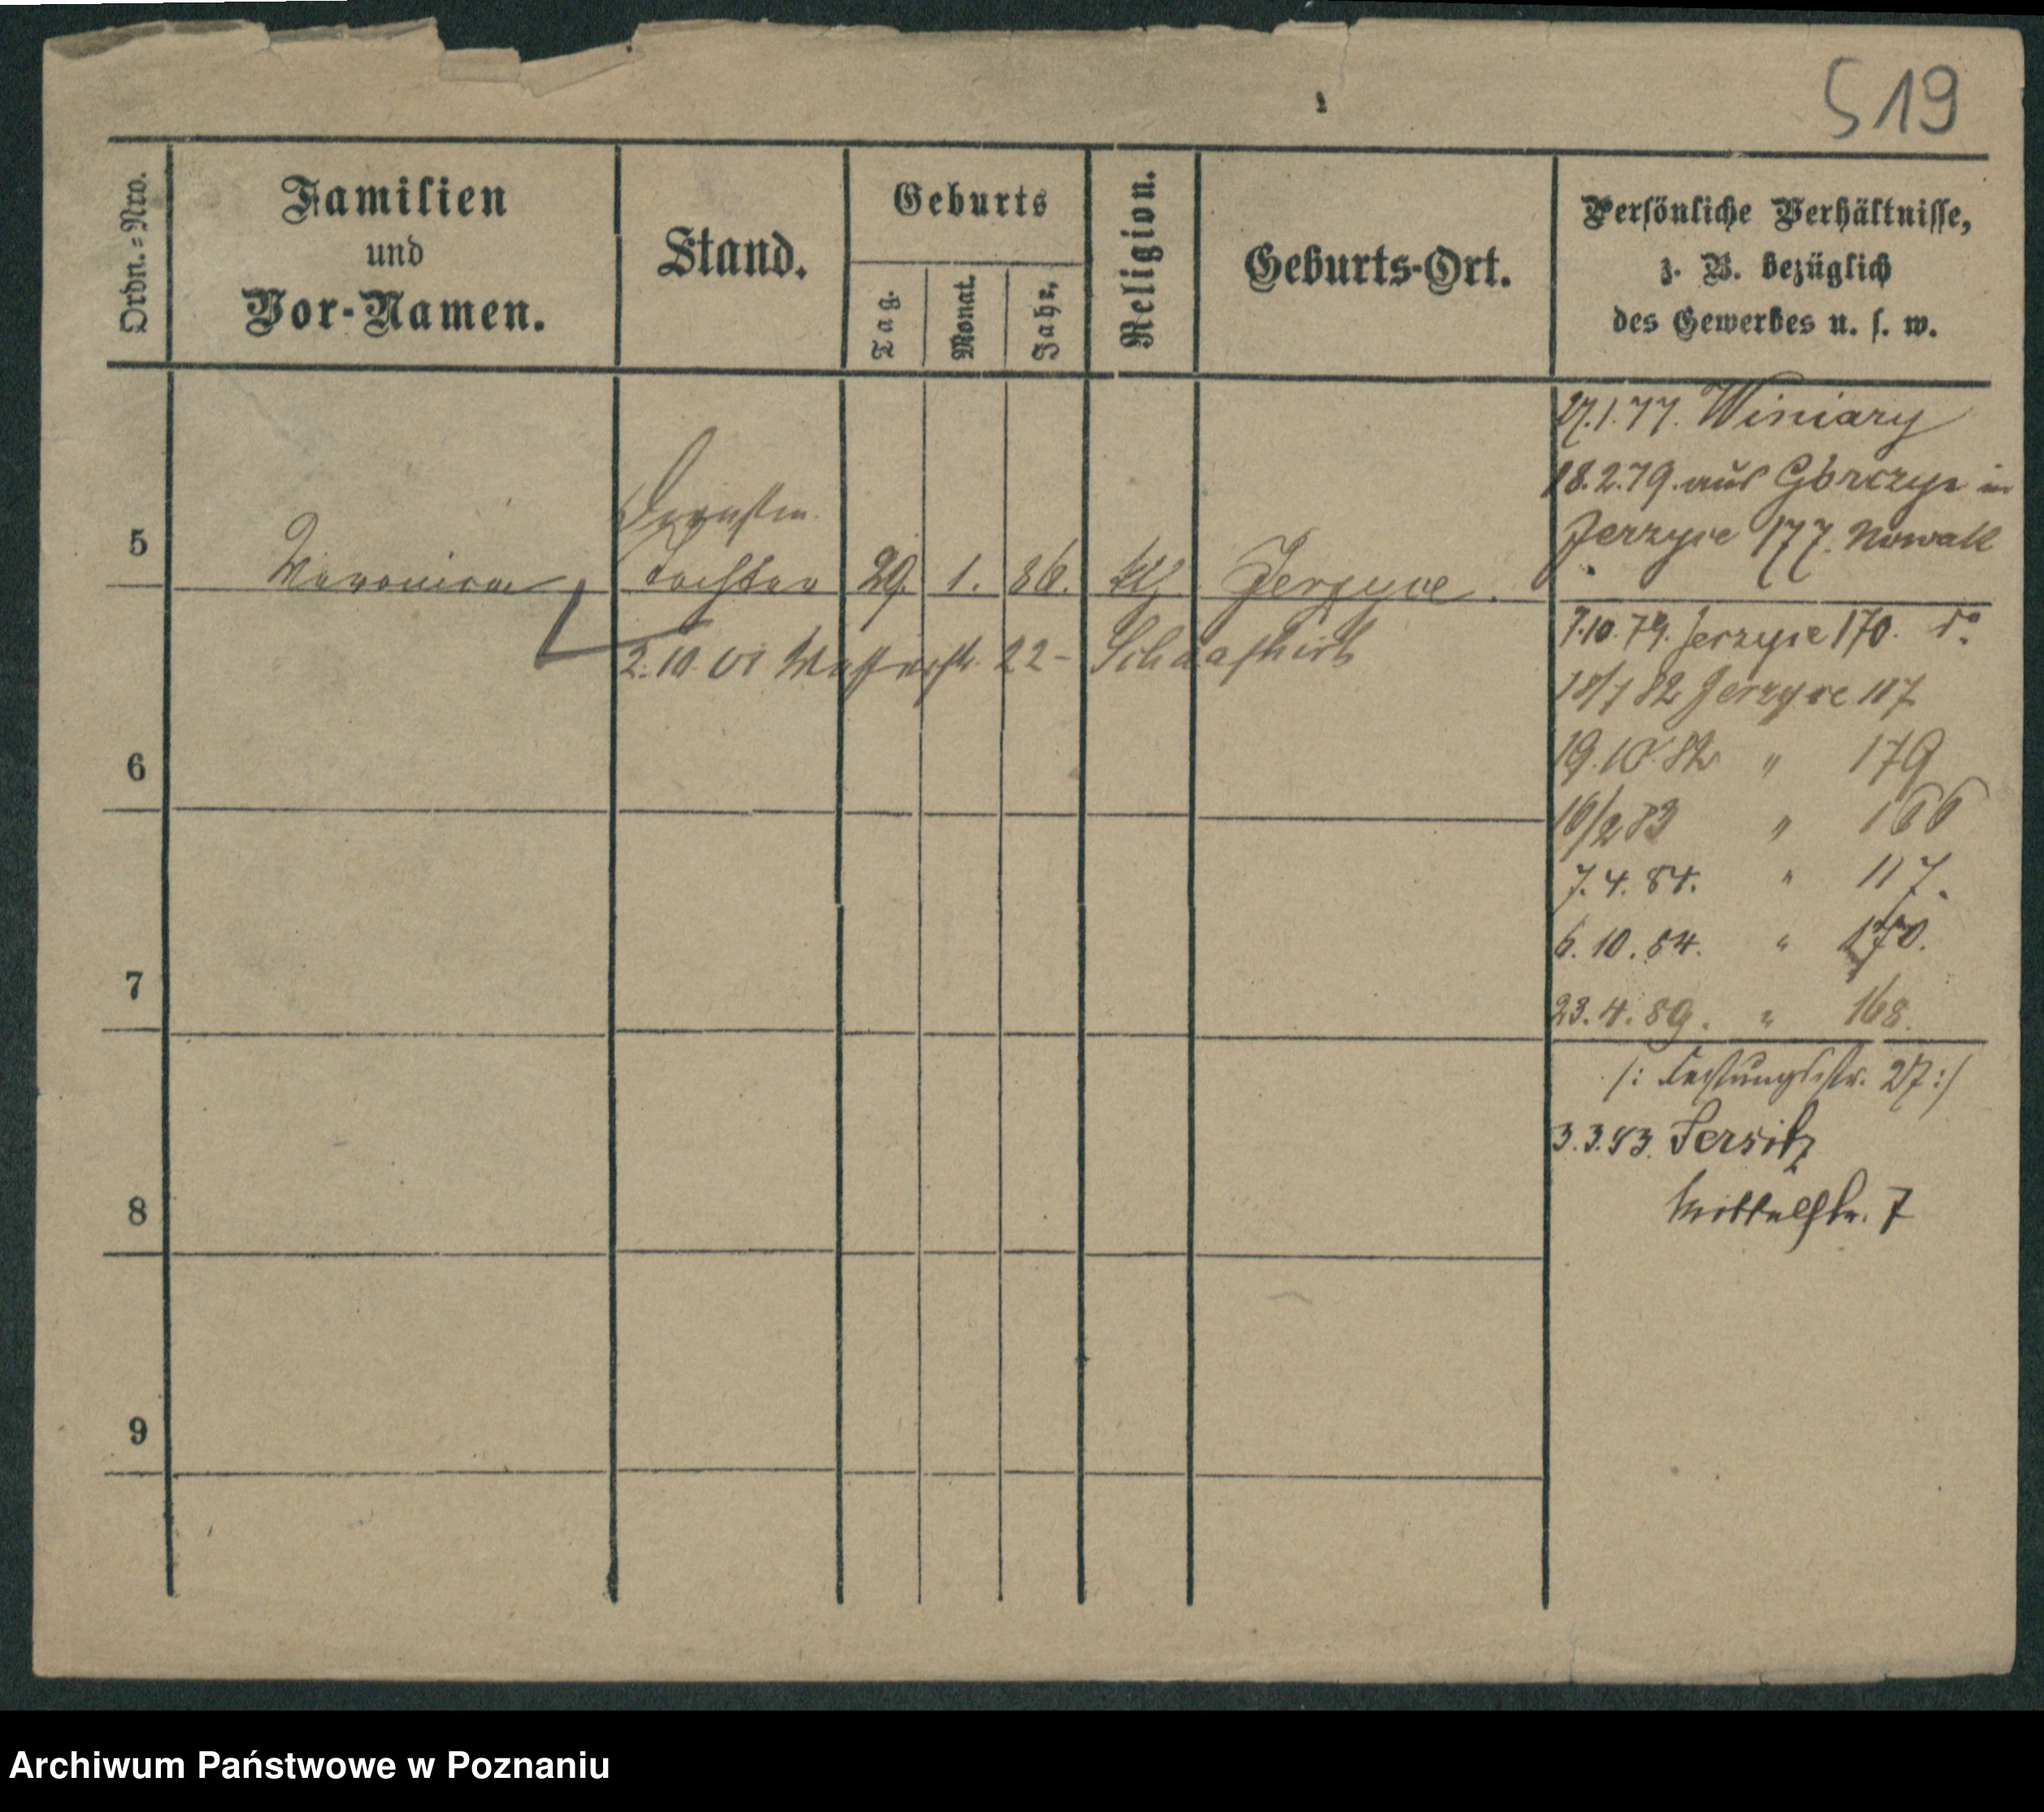 519
Ordn.=Nro.
Familien
und
Vor-Namen.
Stand.
Geburts
Tag.
Monat.
Jahr,
Religion.
Geburts-Ort.
Persönliche Verhältnisse,
z. B. bezüglich
des Gewerbes u. s. w.
5
Veronica
Tochter
29. 1. 86. Jerzyce.
2. 10. 01 22 -
27.1.77. Winiary
18.2.79. aus Górczyn in
Jerzyce 177. Nowak
7.10.79. Jerzyce 170. do
18/7 82 Jerzyce 117
19.10.82 " 179
16/2 83 " 166
7.4.84. " 117.
6.10.84. " 170.
23.4.89. " 168.
/: Festungsstr. 27 :/
3.3.93. Jersitz
Mittelstr. 7
6
7
8
9
Archiwum Państwowe w Poznaniu